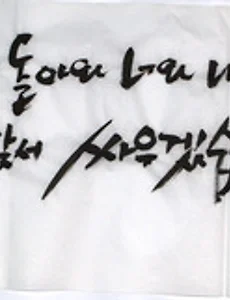 돌아와 너와
서 싸우겠습